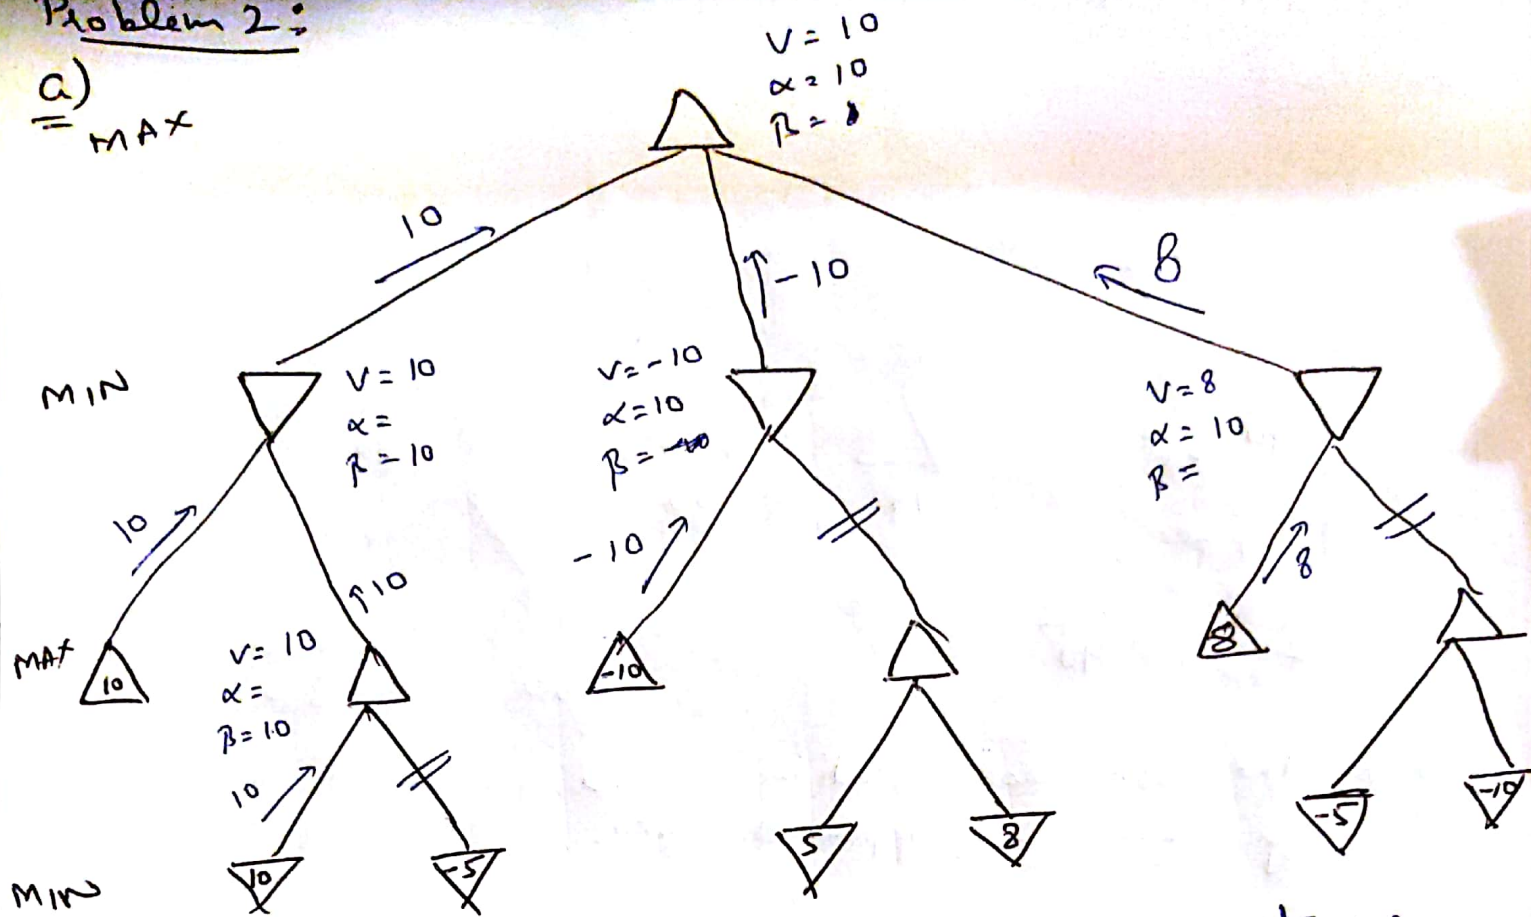 Problem 2:
a)
MAX
V = 10
α = 10
β =
10
-10
8
MIN
V = 10
α =
β = 10
V = -10
α = 10
β =
V = 8
α = 10
β =
10
10
-10
8
MAX
10
V = 10
α =
β = 10
-10
8
10
MIN
10
-5
5
8
-5
-10